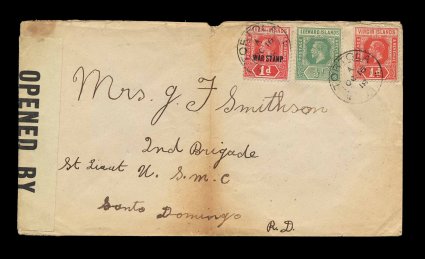 OPENED BY
WAR STAMP
1d
LEEWARD ISLANDS
VIRGIN ISLANDS
1d
TORTOLA
Mrs. J. F Smithson
2nd Brigade
St Lieut U. S. M. C
Santo Domingo
R. D.